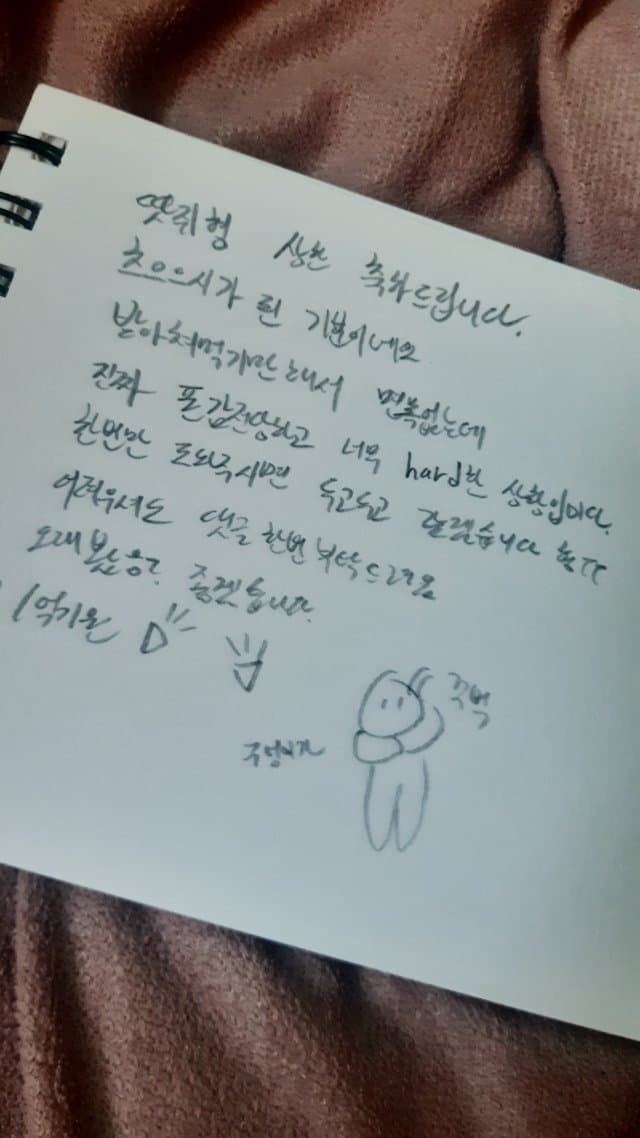 땃쥐형 상한 축하드립니다.
초으으시가 된 기분이네요
받아쳐먹기만해서 면목없는데
진짜 폰값전당하고 너무 hard한 상황입니다.
한번만 도와주시면 두고두고
어려우셔도 댓글한번 부탁드려요
오래봤응? 좋겠습니다.
1억기원
꾸벅
구렁이가